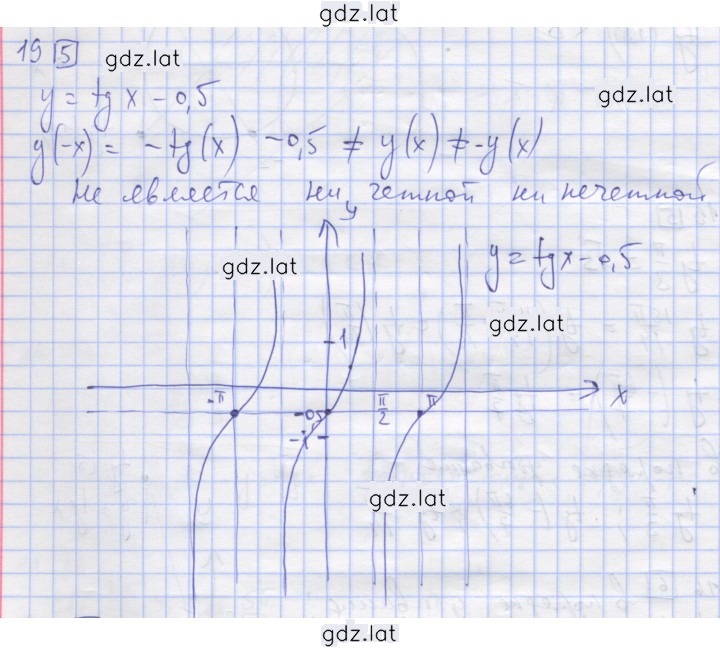 gdz.lat
19 5
gdz.lat
y = tg x - 0,5
gdz.lat
y(-x) = -tg(x) -0,5 ≠ y(x) ≠ -y(x)
не является ни четной ни нечетной
y
gdz.lat
y = tg x - 0,5
gdz.lat
1
-π
π/2
π
x
-0,5
-1
gdz.lat
gdz.lat